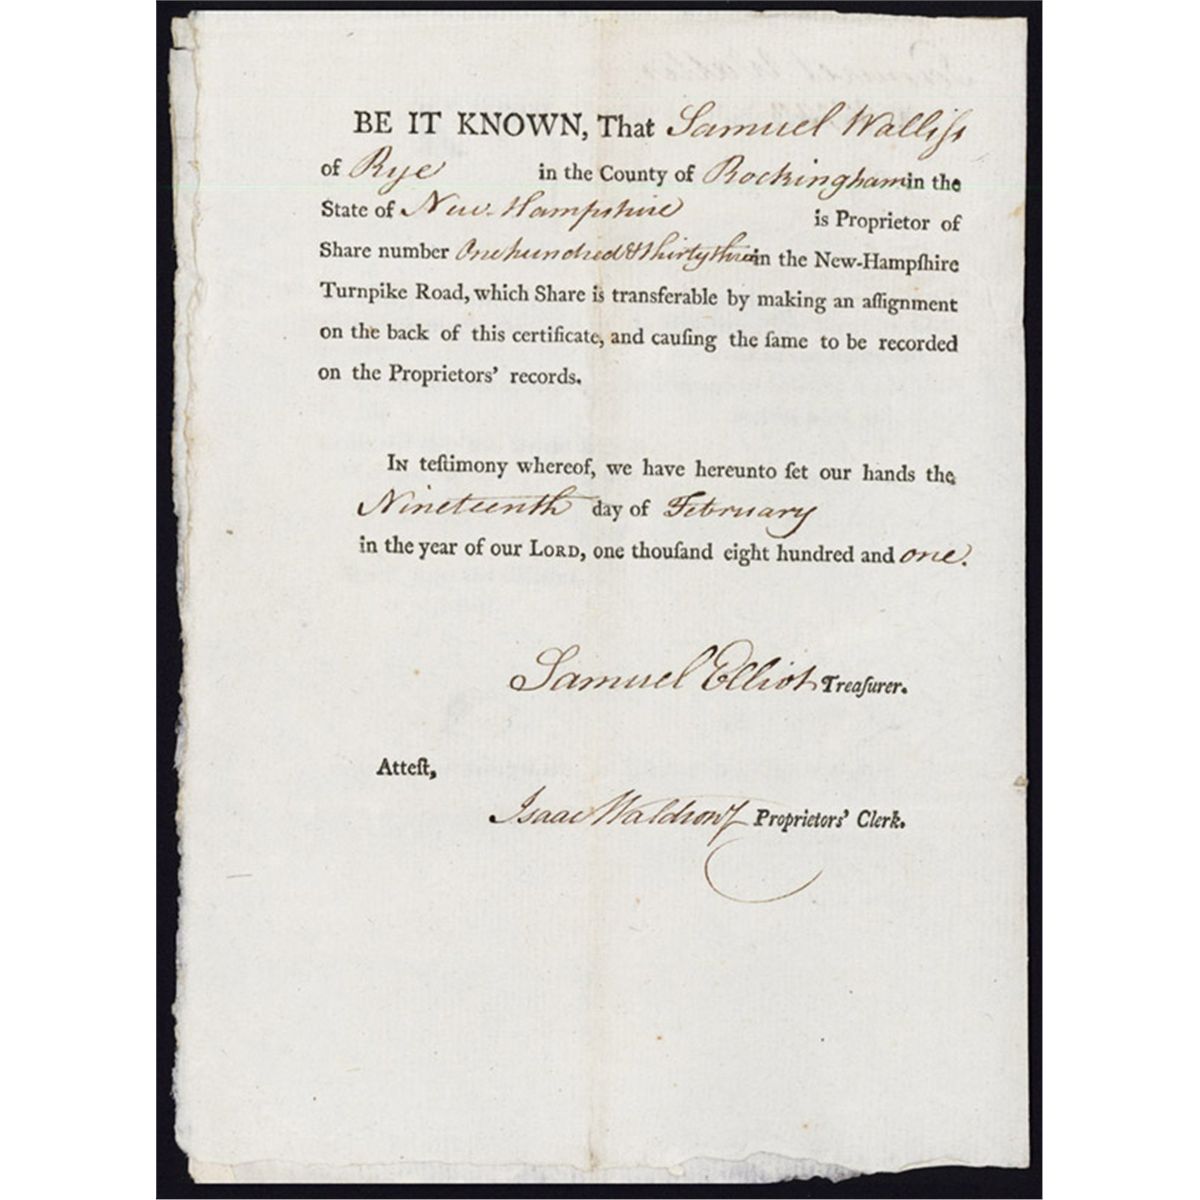 BE IT KNOWN, That Samuel Walliſs
of Rye in the County of Rockingham in the
State of New-Hampshire is Proprietor of
Share number One hundred & Thirty three in the New-Hampſhire
Turnpike Road, which Share is transferable by making an aſſignment
on the back of this certificate, and cauſing the ſame to be recorded
on the Proprietors' records.
IN teſtimony whereof, we have hereunto ſet our hands the
Nineteenth day of February
in the year of our LORD, one thouſand eight hundred and one.
Samuel Elliot Treaſurer.
Atteſt,
Isaac Waldron Proprietors' Clerk.